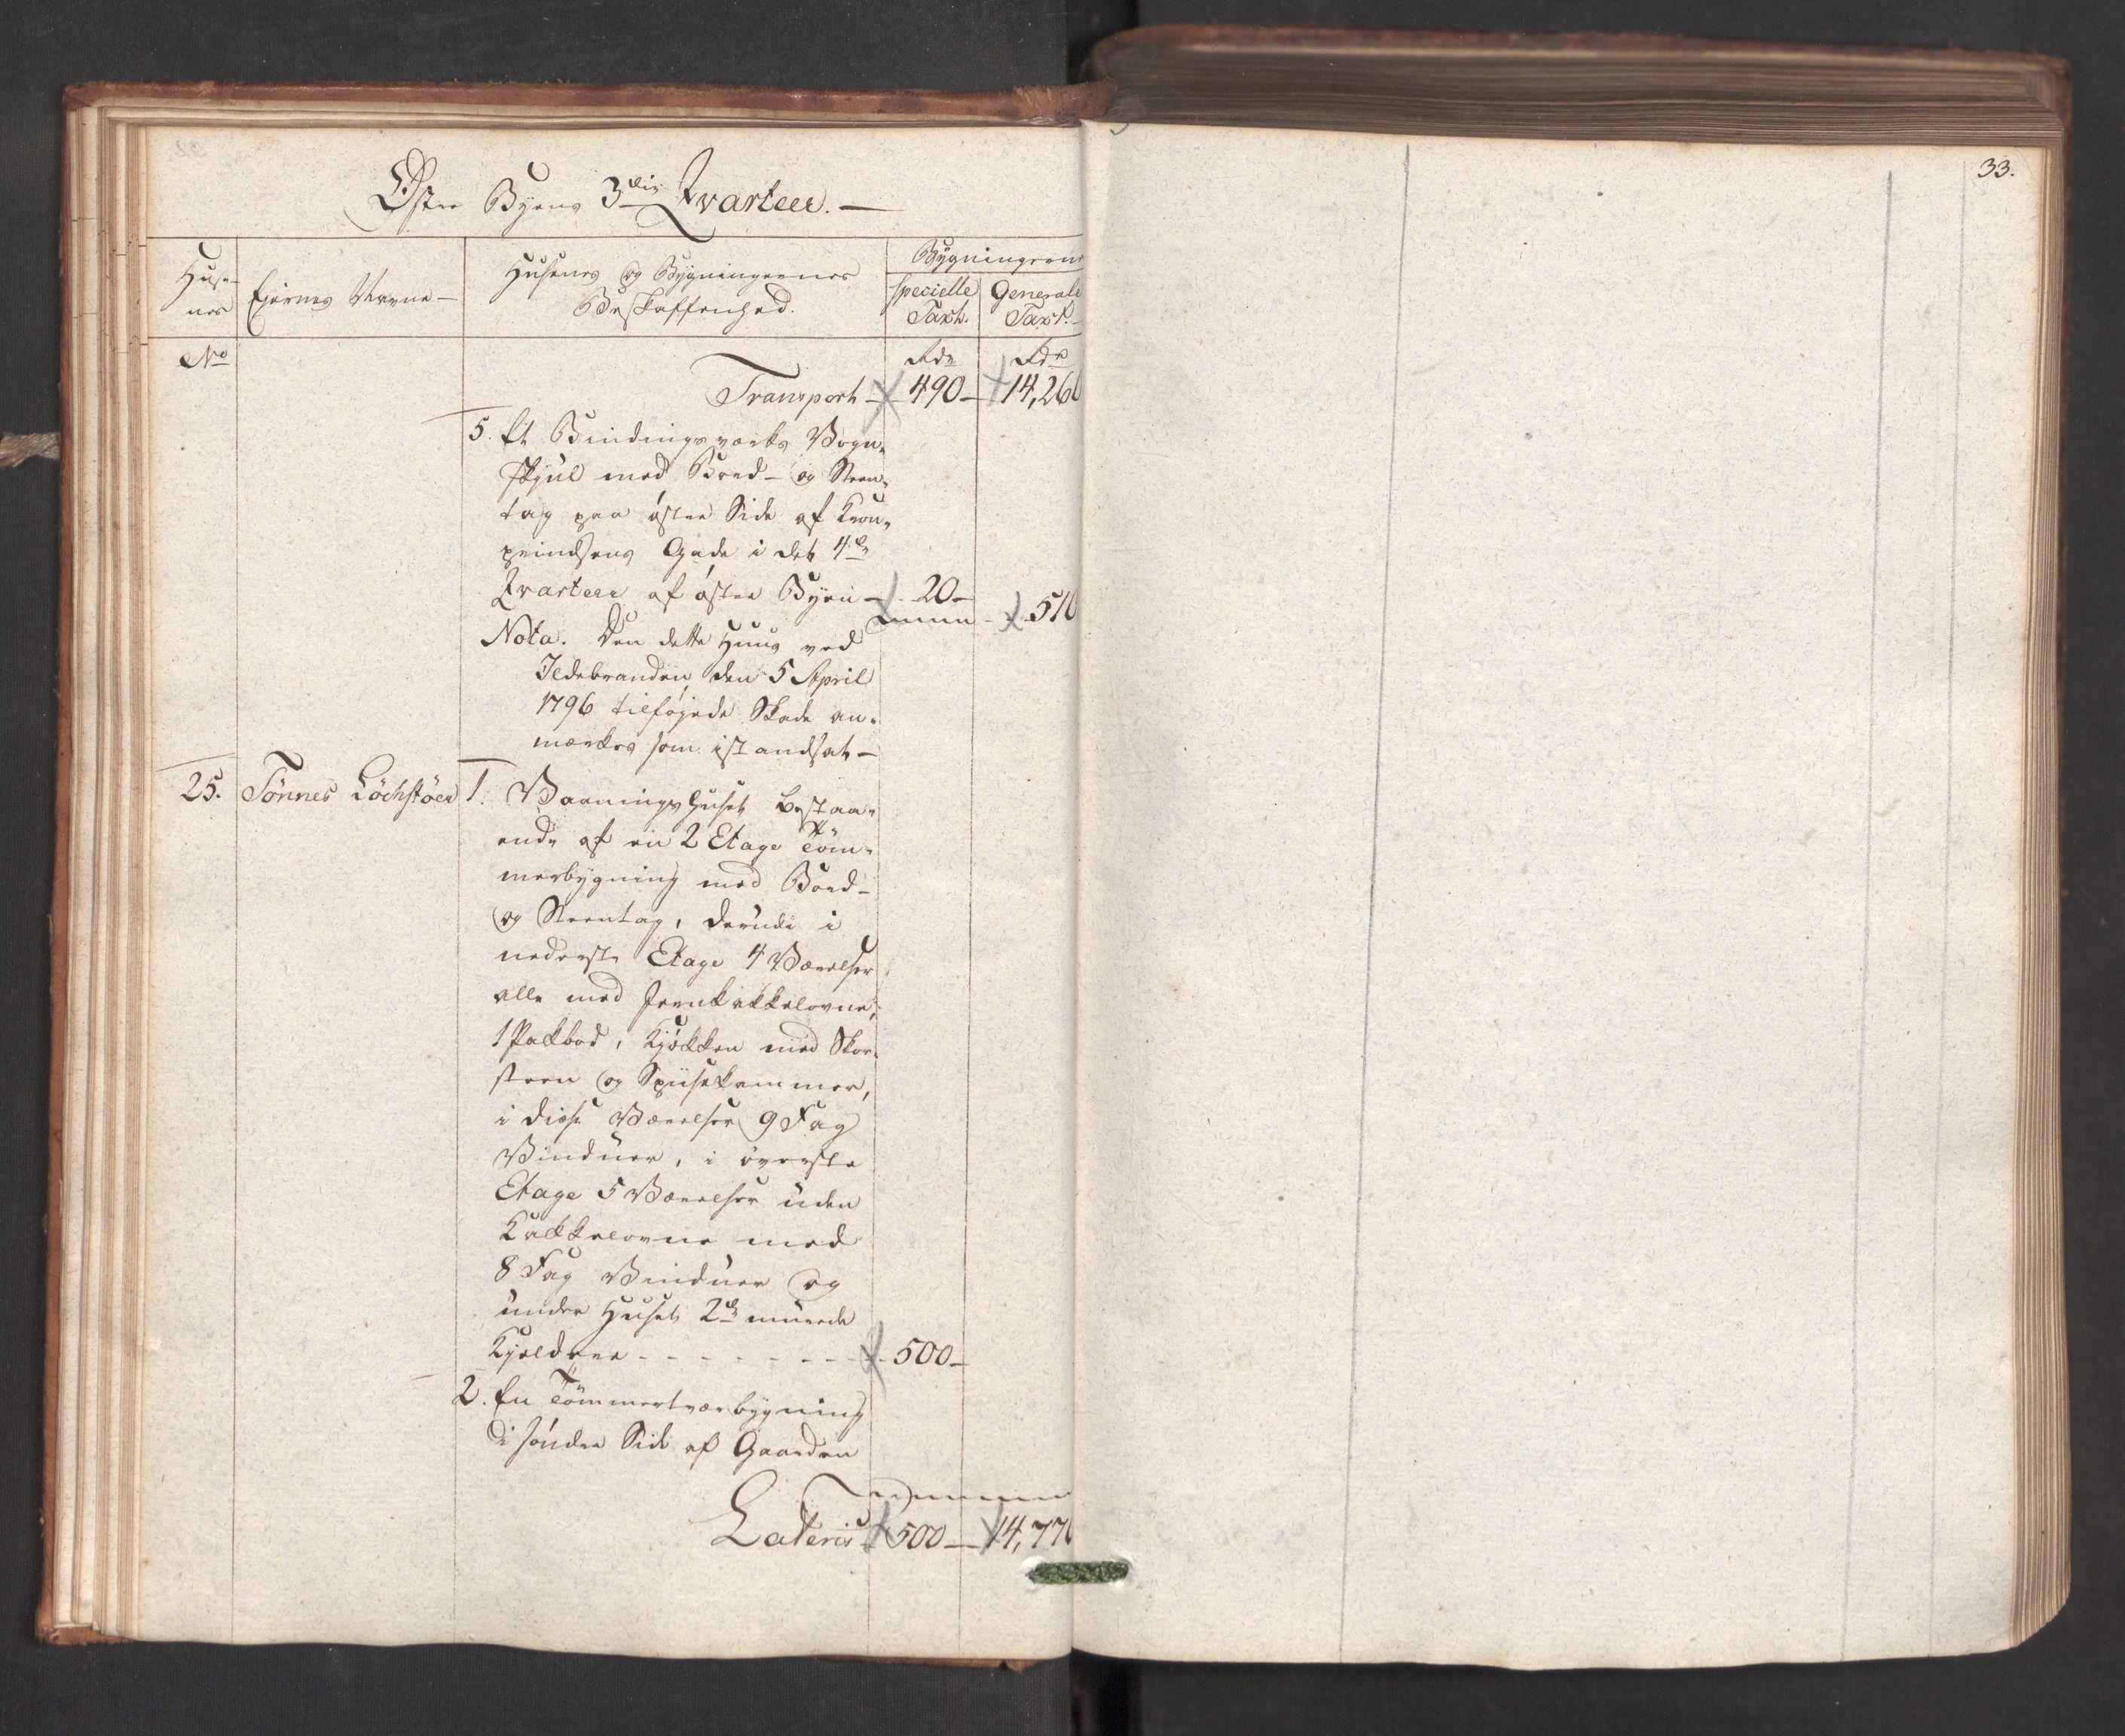 33.
Østre Byens 3die Qvarteer. —
Huse-
nes
Ejernes Navne —
Husenes og Bygningernes
Beskaffenhed.
Bygningerne
specielle
Taxt.
Generale
Taxt. —
No
Rdr
Rdr
Transport — 490 — 14,260
5. Et Bindingsværks Vogn-
skjul med Bord- og Steen-
tag paa østre Side af Kron-
prindsens Gade i det 4de
Qvarteer af østre Byen — 20 —
510
Nota. Den dette Huus ved
Ildebranden den 5 April
1796 tilføjede Skade an-
mærkes som istandsat —
25. Tønnes Löchstöer 1. Vaaningshuset bestaa-
ende af en 2 Etage Töm-
merbygning med Bord-
og Steentag, derudi i
nederste Etage 4 Værelser
alle med Jernkakkelovne,
1 Pakbod, Kjøkken med Skor-
steen og Spiisekammer,
i disse Værelser 9 Fag
Vinduer, i överste
Etage 5 Værelser uden
Kakkelovne med
8 Fag Vinduer og
under Huset 2de murede
Kjeldere - - - - - - - - 500 —
2. En Tömmertværbygning
i søndre Side af Gaarden
Lateris 500 — 14,770